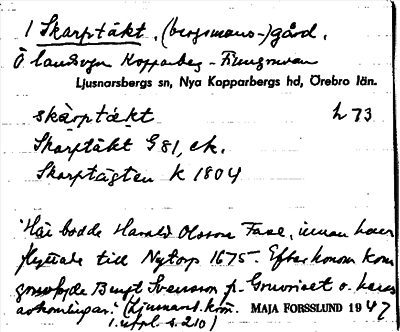 1 Skarptäkt. (bergsmans-)gård.
Ö landsvgn Kopparberg - Finngruvan
Ljusnarsbergs sn, Nya Kopparbergs hd, Örebro län.
skàrptäkt h 73
Skarptäkt G 81, ek.
Skarptägten K 1804
"Här bodde Harald Olsson Fase, innan han
flyttade till Nytorp 1675. Efter honom kom
Bengt Svensson fr. o. hans
(Ljusnarsb. krön.
1. uppl. s. 210)
MAJA FORSSLUND 1947